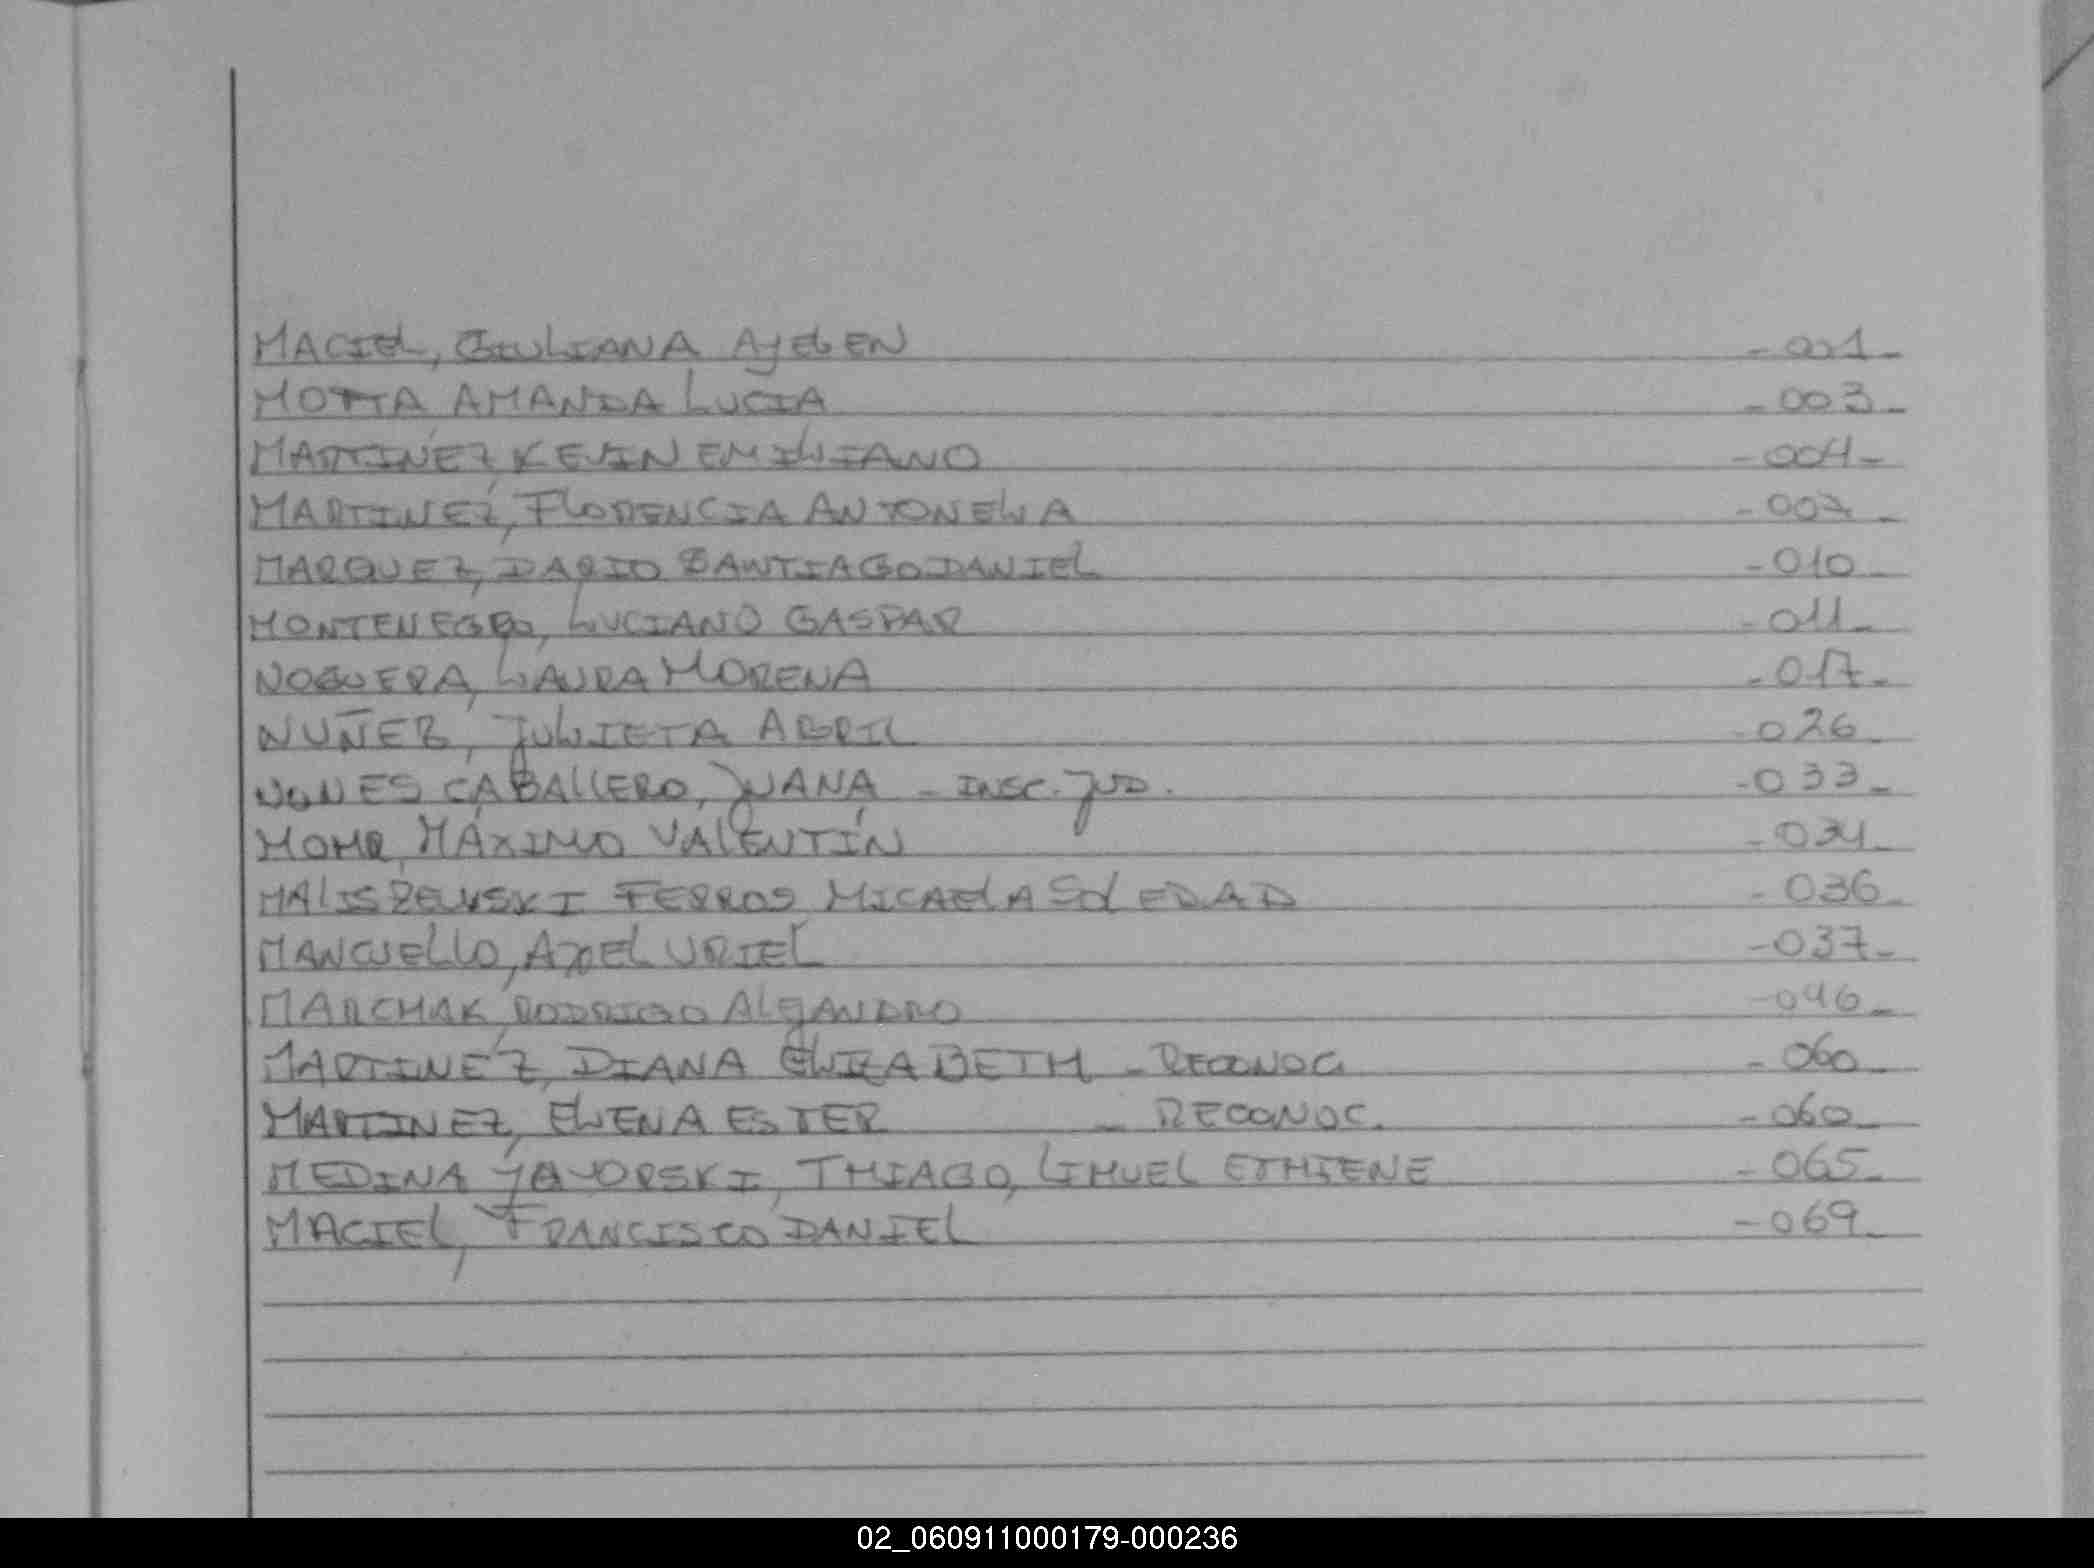 MACIEL, GIULIANA AYELEN -001-
MOTTA AMANDA LUCIA -003-
MARTINEZ, KEVIN EMILIANO -004-
MARTINEZ, FLORENCIA ANTONELLA -007-
MARQUEZ, DARIO SANTIAGO DANIEL -010-
MONTENEGRO, LUCIANO GASPAR -011-
NOGUERA, LAURA MORENA -017-
NUÑEZ, JULIETA ABRIL -026-
NUNES CABALLERO, JUANA - INSC. JUD. -033-
MOHR, MÁXIMO VALENTÍN -034-
MALISZEWSKI FERROS MICAELA SOLEDAD -036-
MANCUELLO, AXEL URIEL -037-
MARCHAK, RODRIGO ALEJANDRO -046-
MARTINEZ, DIANA ELIZABETH - RECONOC. -060-
MARTINEZ, ELENA ESTER - RECONOC. -060-
MEDINA YAVORSKI, THIAGO, LIHUEL ETHIENE -065-
MACIEL, FRANCISCO DANIEL -069-
02_060911000179-000236